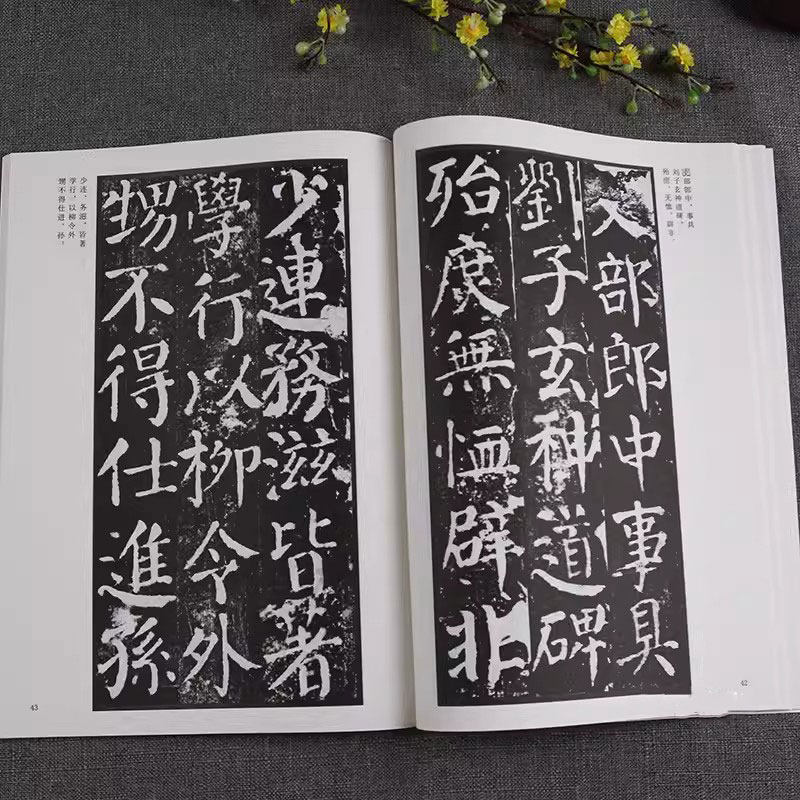 部郎中，事具
刘子玄神道碑。
殆庶、无恤、辟非、
部郎中事具
劉子玄神道碑
殆庶無恤辟非
42
少連務滋皆著
學行以柳令外
甥不得仕進孫
少连、务滋，皆著
学行，以柳令外
甥不得仕进。孙，
43